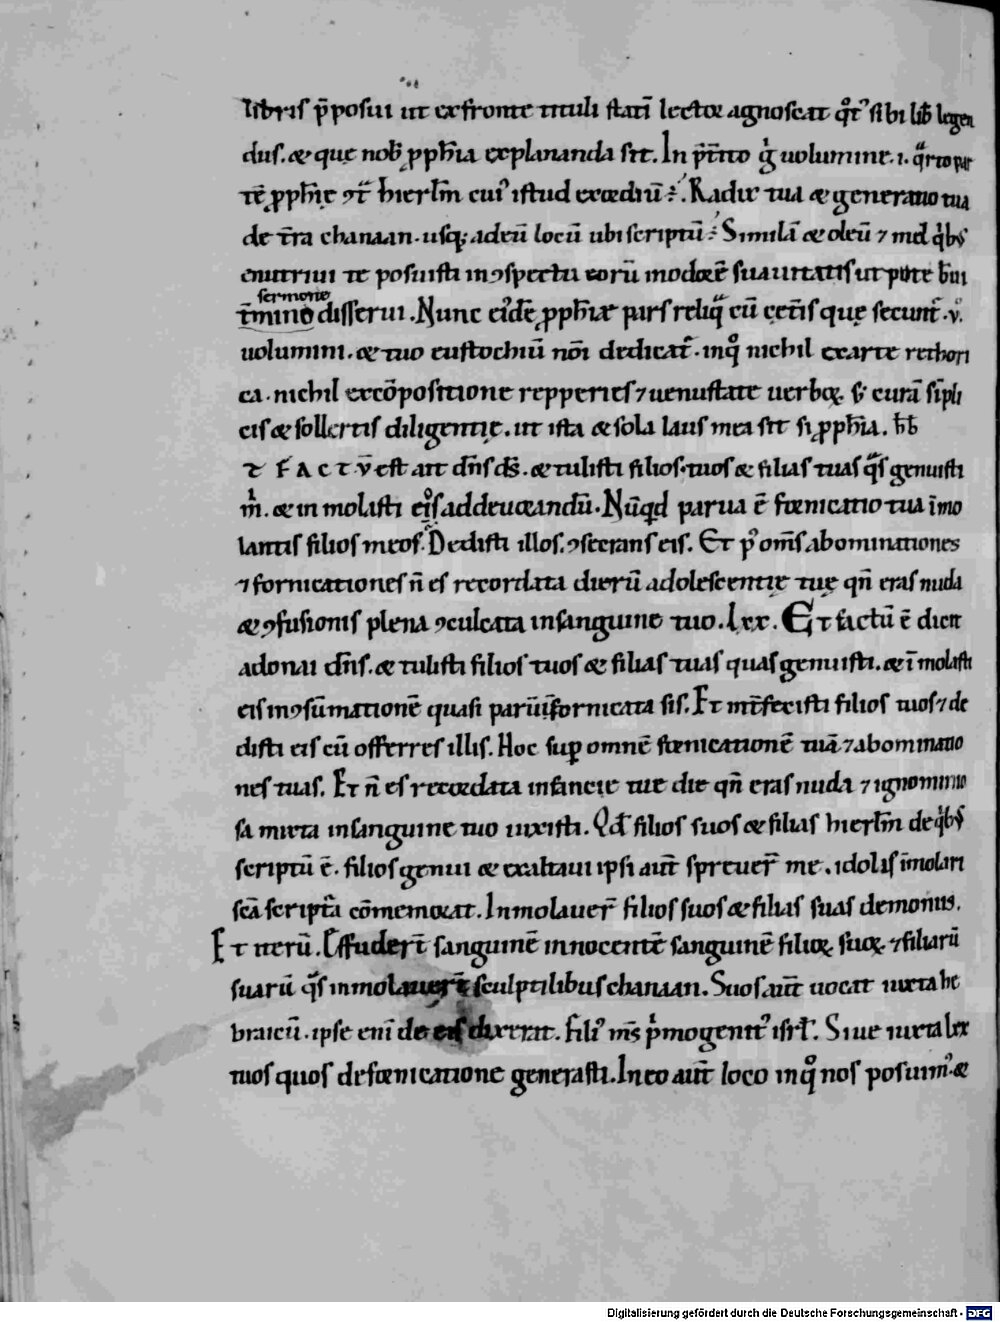 libris p̄posui ut ex fronte tituli stati᷒ lector agnoscat qͦt᷒ sibi lib̄ legen
dus. & que nob̄ ꝓph̄ia explananda sit. In pͥ
uolumine .i. qͣrto par
tē ꝓph̄ie ↄt̄ hierl̄m cui᷒ istud exordiū ÷. Radix tua & generatio tua
de t̄ra chanaan. usq; ad eū locū ubi scriptū ÷ Similā & oleū ⁊ mel qͥbꝰ
enutriui te posuisti in ↄspectu eorū in odorē suauitatis ut pote b̄ui
sermone
t̄mino disserui. Nunc ei᷒dē ꝓph̄iæ pars reliqͣ cū cęt̄is que secunt᷒ .v.
uolumini. & tuo eustochiū nōi dedicat᷒. in qͦ nichil ex arte rethori
ca. nichil ex cōpositione repperies ⁊ uenustate uerboꝝ. sꝫ curā sīpli
cis & sollertis diligentię. ut ista & sola laus mea sit si ꝓph̄ia. h̄b̄
ET FACTV̄ est ait dn̄s ds̄. & tulisti filios tuos & filias tuas qͣs genuisti
mͥ. & inmolasti eis ad deuorandū. Nūqd parua ē fornicatio tua īmo
lantis filios meos. Dedisti illos. ↄsecrans eis. Et pꝰ om̄s abominationes
⁊ fornicationes n̄ es recordata dierū adolescentię tuę qn̄ eras nuda
& ↄfusionis plena ↄculcata in sanguine tuo. lxx. Et factū ē dicit
adonai dn̄s. & tulisti filios tuos & filias tuas quas genuisti. & īmolasti
eis in ↄsūmationē quasi parū fornicata sis. Et int̄fecisti filios tuos ⁊ de
disti eis cū offerres illis. Hoc suꝑ omnē fornicationē tuā ⁊ abominatio
nes tuas. Et n̄ es recordata infancie tue die qn̄ eras nuda ⁊ ignominio
sa mixta in sanguine tuo uixisti. Qd̄ filios suos & filias hierl̄m de qͥbꝰ
scriptū ē. filios genui & exaltaui ipsi aut̄ spreuer̄ me. idolis īmolari
scā script᷒a cōmemorat. Inmolauer̄ filios suos & filias suas demoniis.
Et iterū. Effuder̄t sanguinē innocentē sanguinē filioꝝ suoꝝ ⁊ filiarū
suarū qͣs inmolauer̄t sculptilibus chanaan. Suos aut̄ uocat iuxta he
braicū. ipse eni᷒ de eis dixerat. fili᷒ ms̄ pͥmogenit᷒ isrl̄. Siue iuxta lxx
tuos quos de fornicatione generasti. In eo aut̄ loco in qͦ nos posuim᷒ &
Digitalisierung gefördert durch die Deutsche Forschungsgemeinschaft - DFG